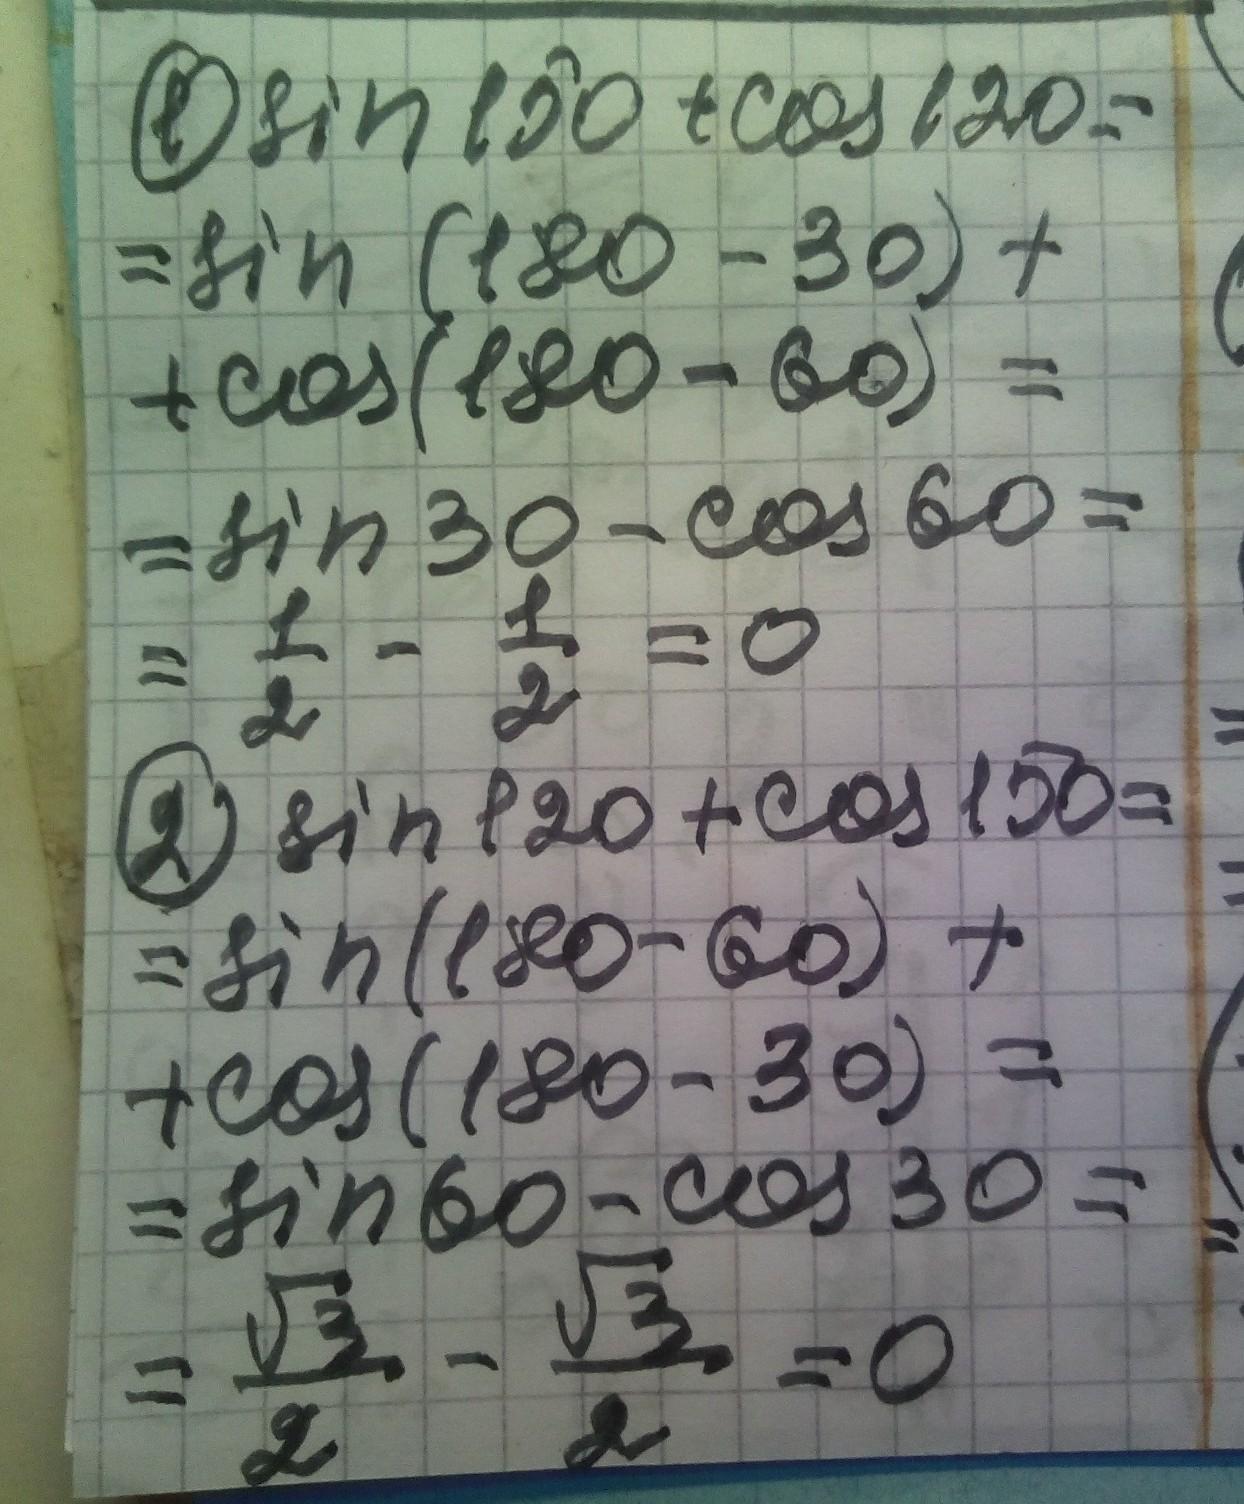 ① sin 150 + cos 120 =
= sin (180 - 30) +
+ cos (180 - 60) =
= sin 30 - cos 60 =
= 1/2 - 1/2 = 0
② sin 120 + cos 150 =
= sin (180 - 60) +
+ cos (180 - 30) =
= sin 60 - cos 30 =
= √3/2 - √3/2 = 0